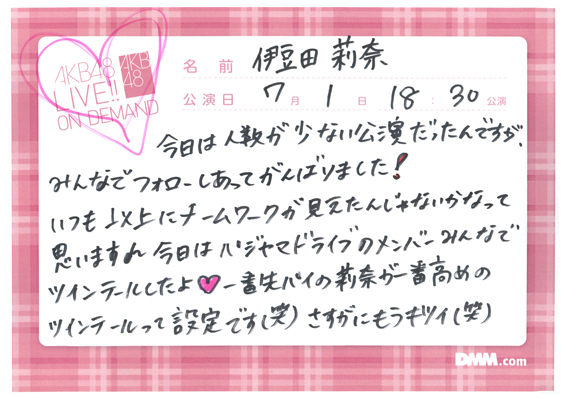 AKB48
LIVE!!
ON DEMAND
AKB
48
名前 伊豆田 莉奈
公演日 7月1日 18:30公演
今日は人数が少ない公演だったんですが、
みんなでフォローしあってがんばりました！
いつも以上にチームワークが見えたんじゃないかなって
思いますね 今日はパジャマドライブのメンバーみんなで
ツインテールしたよ♥一番先パイの莉奈が一番高めの
ツインテールって設定です(笑) さすがにもうキツイ(笑)
DMM.com